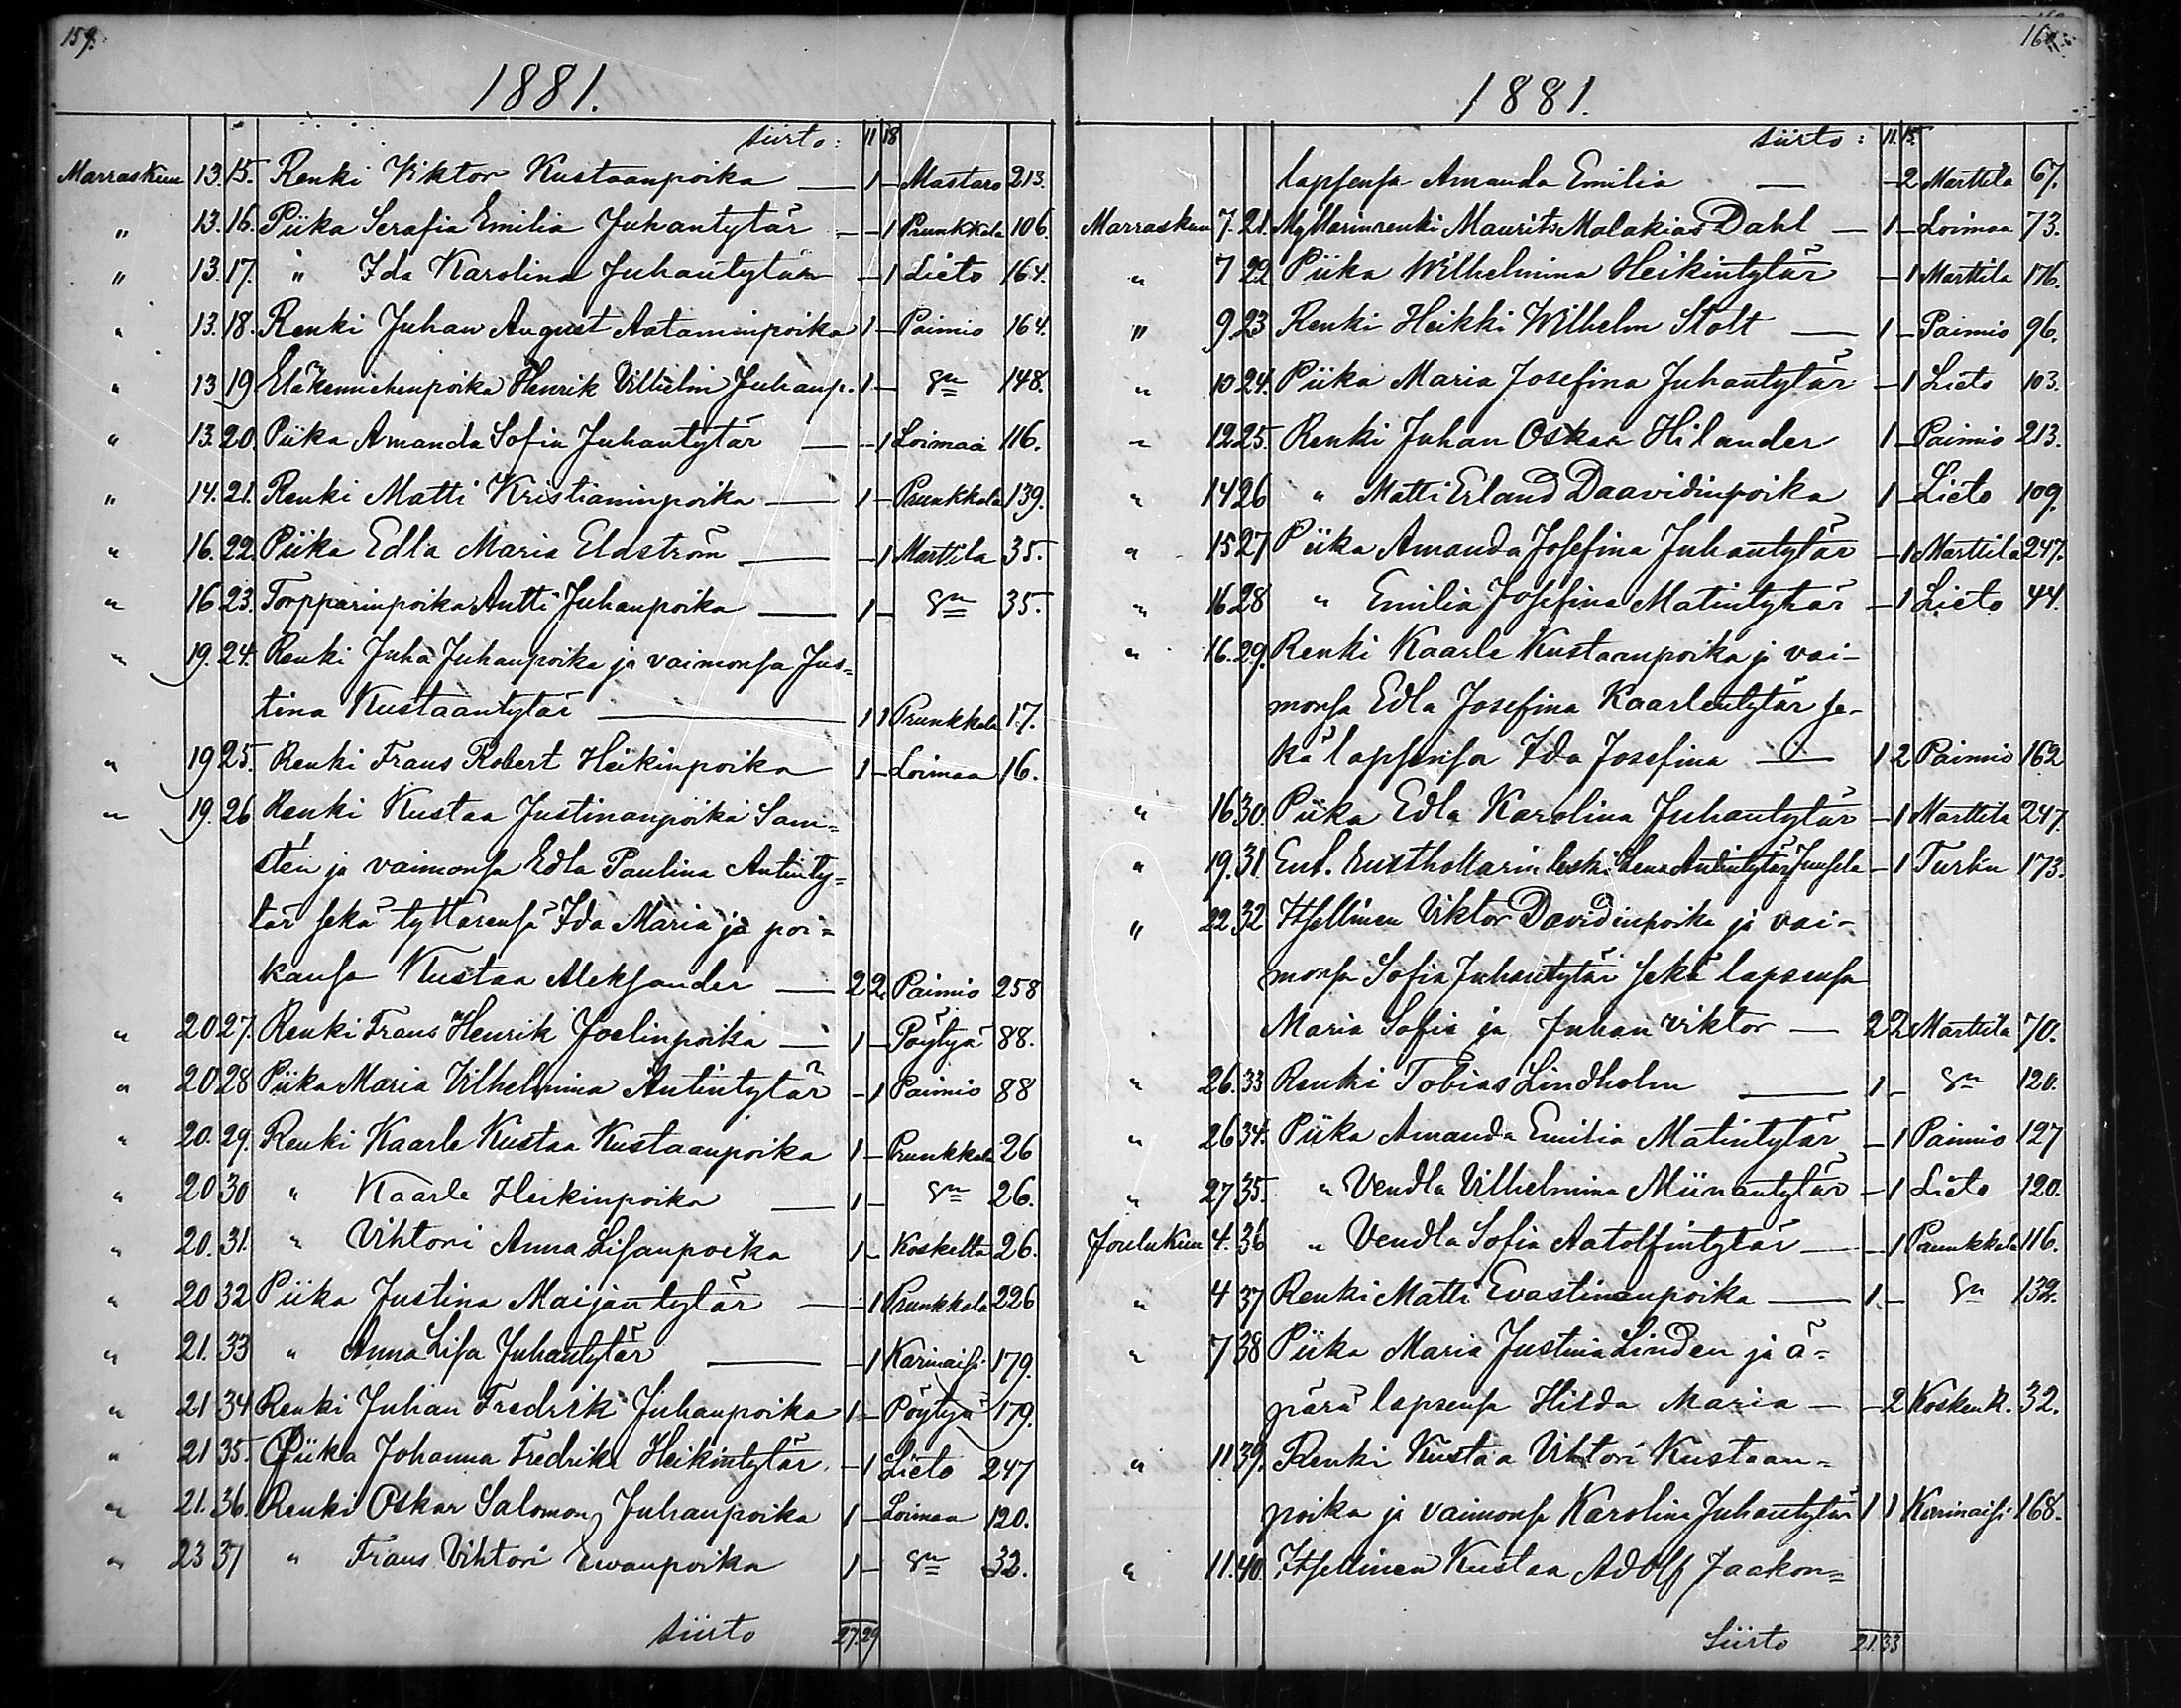 159.
1881.
siirto: 11 18
Marraskuu 13. 15. Renki Viktor Kustaanpoika — 1 – Mastaro 213.
" 13. 16. Piika Serafia Emilia Juhantytär – – 1 Prunkkala 106.
" 13. 17. " Ida Karolina Juhantytär – 1 Lieto 164.
" 13. 18. Renki Juhan August Aataminpoika 1 – Paimio 164.
" 13 19. Henrik Vilhelm Juhanp. 1 – 148.
" 13. 20. Piika Amanda Sofia Juhantytär — – 1 Loimaa 116.
" 14. 21. Renki Matti Kristianinpoika — 1 – Prunkkala 139.
" 16. 22. Piika Edla Maria Eldström — – 1 Marttila 35.
" 16 23. Torpparinpoika Antti Juhanpoika — 1 – 35.
" 19. 24. Renki Juha Juhanpoika ja vaimonsa Jus=
tina Kustaantytär — 1 1 Prunkkala 17.
" 19 25. Renki Frans Robert Heikinpoika 1 – Loimaa 16.
" 19. 26 Renki Kustaa Justinanpoika Sam=
sten ja vaimonsa Edla Paulina Antinty=
tär sekä tyttärensä Ida Maria ja poi=
kansa Kustaa Aleksander — 2 2 Paimio 258
" 20 27. Renki Frans Henrik Joelinpoika — 1 – Pöytyä 88.
" 20 28 Piika Maria Vilhelmina Antintytär – 1 Paimio 88
" 20. 29. Renki Kaarle Kustaa Kustaanpoika 1 – Prunkkala 26
" 20 30 " Kaarle Heikinpoika — 1 – 26.
" 20. 31. " Vihtori Anna Lisanpoika 1 – 26.
" 20 32 Piika Justina Maijantytär — – 1 Prunkkala 226
" 21. 33 " Anna Lisa Juhantytär — – 1 Karinais. 179.
" 21 34 Renki Juhan Fredrik Juhanpoika 1 – Pöytyä 179.
" 21 35. Piika Johanna Fredrika Heikintytär. – 1 Lieto 247
" 21. 36. Renki Oskar Salomon Juhanpoika 1 – Loimaa 120.
" 23 37 " Frans Vihtori Ewanpoika 1 – 32.
siirto 27. 29
1881.
siirto: 11. 15.
lapsensa Amanda Emilia — – 2 Marttila 67.
Marraskuu 7. 21. Myllärinrenki Maurits Malakias Dahl — 1 – Loimaa 73.
" 7 22. Piika Wilhelmina Heikintytär – 1 Marttila 176.
" 9. 23 Renki Heikki Wilhelm Stolt — 1 – Paimio 96.
" 10 24. Piika Maria Josefina Juhantytär – 1 Lieto 103.
" 12 25. Renki Juhan Oskar Hilander 1 – Paimio 213.
" 14 26 " Matti Erland Daavidinpoika 1 – Lieto 109.
" 15 27 Piika Amanda Josefina Juhantytär – 1 Marttila 247.
" 16 28 " Emilia Josefina Matintytär – 1 Lieto 44.
" 16. 29. Renki Kaarle Kustaanpoika ja vai-
monsa Edla Josefina Kaarlentytär se-
kä lapsensa Ida Josefina — 1 2 Paimio 162
" 16 30. Piika Edla Karolina Juhantytär – 1 Marttila 247.
" 19. 31. Ent. leski Lena Antintytär – 1 Turku 173.
" 22 32 Itsellinen Viktor Davidinpoika ja vai-
monsa Sofia Juhantytär sekä lapsensa
Maria Sofia ja Juhan Viktor — 2 2 Marttila 70.
" 26. 33 Renki Tobias Lindholm — 1 – 120.
" 26 34. Piika Amanda Emilia Matintytär – 1 Paimio 127
" 27 35. " Vendla Vilhelmina Miinantytär – 1 Lieto 120.
Joulukuu 4. 36 " Vendla Sofia Aatolfintytär — – 1 Prunkkala 116.
" 4 37 Renki Matti Evastinanpoika — 1. – 132.
" 7 38 Piika Maria Justina Linden ja ä=
pärä lapsensa Hilda Maria — – 2 Kosken k. 32.
" 11 39. Renki Kustaa Vihtori Kustaan=
poika ja vaimonsa Karolina Juhantytär 1 1 Karinaisi 168.
" 11. 40. Itsellinen Kustaa Adolf Jaakon=
Siirto 21. 33